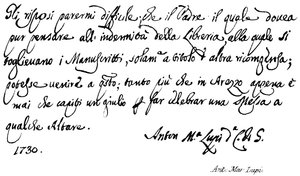 Gli risposi parermi difficile, che il Padre il quale dovea
pur pensare all'indennità della Libreria, alla quale si
toglievano i Manuscritti, solam.e a titolo d'altra ricompensa,
potesse venire a q.sto: tanto più che in Arezzo appena è
mai che capiti un giulio p far celebrar una Messa a
qualche Altare.
Anton M.a Lupi d.a C. di G.
1730.
Ant. Mar. Lupi.